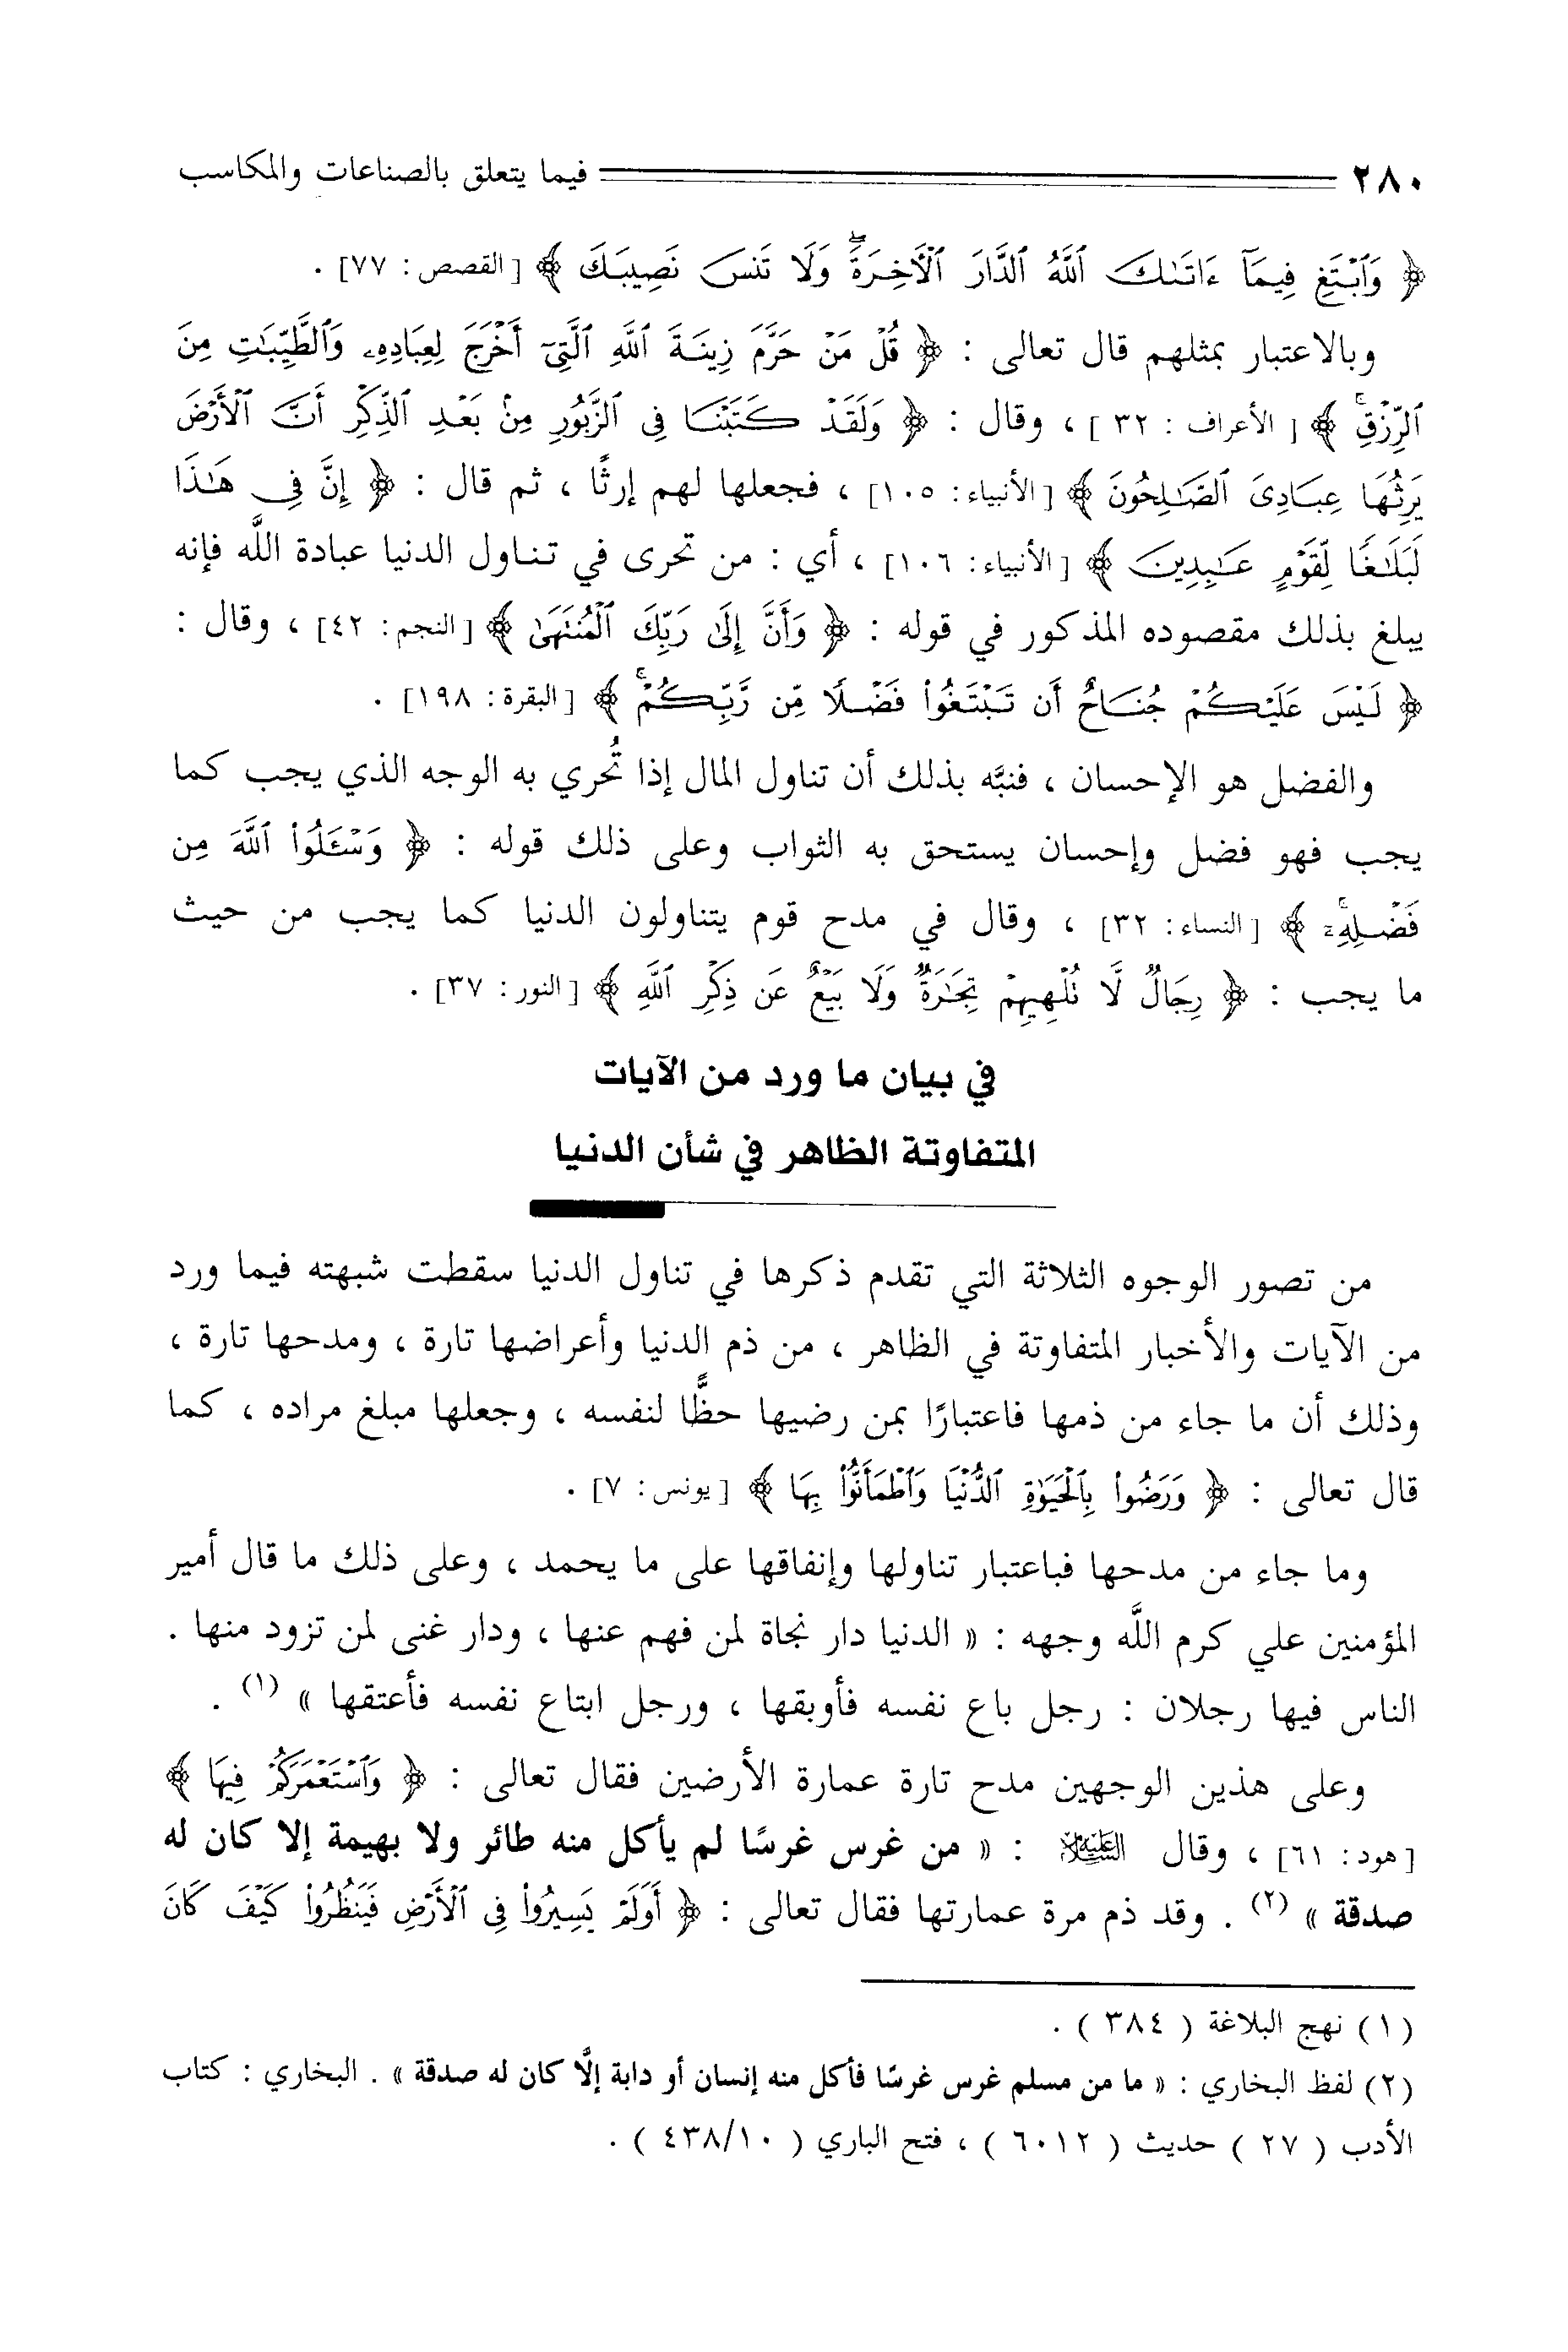 ٢٨٠ فيما يتعلق بالصناعات والمكاسب
﴿ وَٱبْتَغِ فِيمَآ ءَاتَىٰكَ ٱللَّهُ ٱلدَّارَ ٱلْأَخِرَةَۖ وَلَا تَنسَ نَصِيبَكَ ﴾ [القصص: ٧٧] .
وبالاعتبار بمثلهم قال تعالى : ﴿ قُلْ مَنْ حَرَّمَ زِينَةَ ٱللَّهِ ٱلَّتِىٓ أَخْرَجَ لِعِبَادِهِۦ وَٱلطَّيِّبَٰتِ مِنَ
ٱلرِّزْقِۚ ﴾ [ الأعراف : ٣٢ ] ، وقال : ﴿ وَلَقَدْ كَتَبْنَا فِى ٱلزَّبُورِ مِنۢ بَعْدِ ٱلذِّكْرِ أَنَّ ٱلْأَرْضَ
يَرِثُهَا عِبَادِىَ ٱلصَّٰلِحُونَ ﴾ [الأنبياء: ١٠٥] ، فجعلها لهم إرثًا ، ثم قال : ﴿ إِنَّ فِى هَٰذَا
لَبَلَٰغًا لِّقَوْمٍ عَٰبِدِينَ ﴾ [الأنبياء: ١٠٦] ، أي : من تحرى في تناول الدنيا عبادة اللَّه فإنه
يبلغ بذلك مقصوده المذكور في قوله : ﴿ وَأَنَّ إِلَىٰ رَبِّكَ ٱلْمُنتَهَىٰ ﴾ [النجم: ٤٢] ، وقال :
﴿ لَيْسَ عَلَيْكُمْ جُنَاحٌ أَن تَبْتَغُواْ فَضْلًا مِّن رَّبِّكُمْۚ ﴾ [البقرة: ١٩٨] .
والفضل هو الإحسان ، فنبَّه بذلك أن تناول المال إذا تُحري به الوجه الذي يجب كما
يجب فهو فضل وإحسان يستحق به الثواب وعلى ذلك قوله : ﴿ وَسْـَٔلُواْ ٱللَّهَ مِن
فَضْلِهِۦٓۚ ﴾ [النساء: ٣٢] ، وقال في مدح قوم يتناولون الدنيا كما يجب من حيث
ما يجب : ﴿ رِجَالٌ لَّا تُلْهِيهِمْ تِجَٰرَةٌ وَلَا بَيْعٌ عَن ذِكْرِ ٱللَّهِ ﴾ [النور: ٣٧] .
في بيان ما ورد من الآيات
المتفاوتة الظاهر في شأن الدنيا
من تصور الوجوه الثلاثة التي تقدم ذكرها في تناول الدنيا سقطت شبهته فيما ورد
من الآيات والأخبار المتفاوتة في الظاهر ، من ذم الدنيا وأعراضها تارة ، ومدحها تارة ،
وذلك أن ما جاء من ذمها فاعتبارًا بمن رضيها حظًّا لنفسه ، وجعلها مبلغ مراده ، كما
قال تعالى : ﴿ وَرَضُواْ بِٱلْحَيَوٰةِ ٱلدُّنْيَا وَٱطْمَأَنُّواْ بِهَا ﴾ [يونس: ٧] .
وما جاء من مدحها فباعتبار تناولها وإنفاقها على ما يحمد ، وعلى ذلك ما قال أمير
المؤمنين علي كرم اللَّه وجهه : « الدنيا دار نجاة لمن فهم عنها ، ودار غنى لمن تزود منها .
الناس فيها رجلان : رجل باع نفسه فأوبقها ، ورجل ابتاع نفسه فأعتقها » (١) .
وعلى هذين الوجهين مدح تارة عمارة الأرضين فقال تعالى : ﴿ وَٱسْتَعْمَرَكُمْ فِيهَا ﴾
[هود: ٦١] ، وقال عليه السلام : « من غرس غرسًا لم يأكل منه طائر ولا بهيمة إلا كان له
صدقة » (٢) . وقد ذم مرة عمارتها فقال تعالى : ﴿ أَوَلَمْ يَسِيرُواْ فِى ٱلْأَرْضِ فَيَنظُرُواْ كَيْفَ كَانَ
(١) نهج البلاغة ( ٣٨٤ ) .
(٢) لفظ البخاري : « ما من مسلم غرس غرسًا فأكل منه إنسان أو دابة إلَّا كان له صدقة » . البخاري : كتاب
الأدب ( ٢٧ ) حديث ( ٦٠١٢ ) ، فتح الباري ( ٤٣٨/١٠ ) .